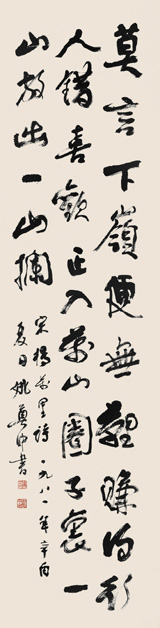 莫言下嶺便無難賺得行
人錯喜歡正入萬山圈子裏一
山放出一山攔
宋楊萬里詩一九八一年辛酉
夏日姚奠中書